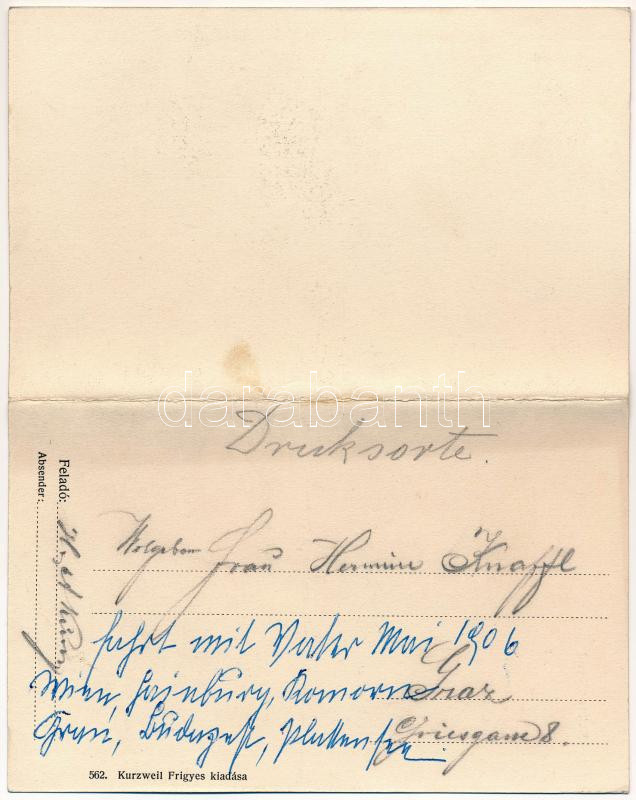 darabanth
Drucksorte.
Feladó:
Absender:
Wolgebor Frau Hermine Knaffl
Fahrt mit Vater Mai 1906
Wien, Hainburg, Komorn Graz
Gran, Budapest, Plattensee Griesgasse 8.
562. Kurzweil Frigyes kiadása